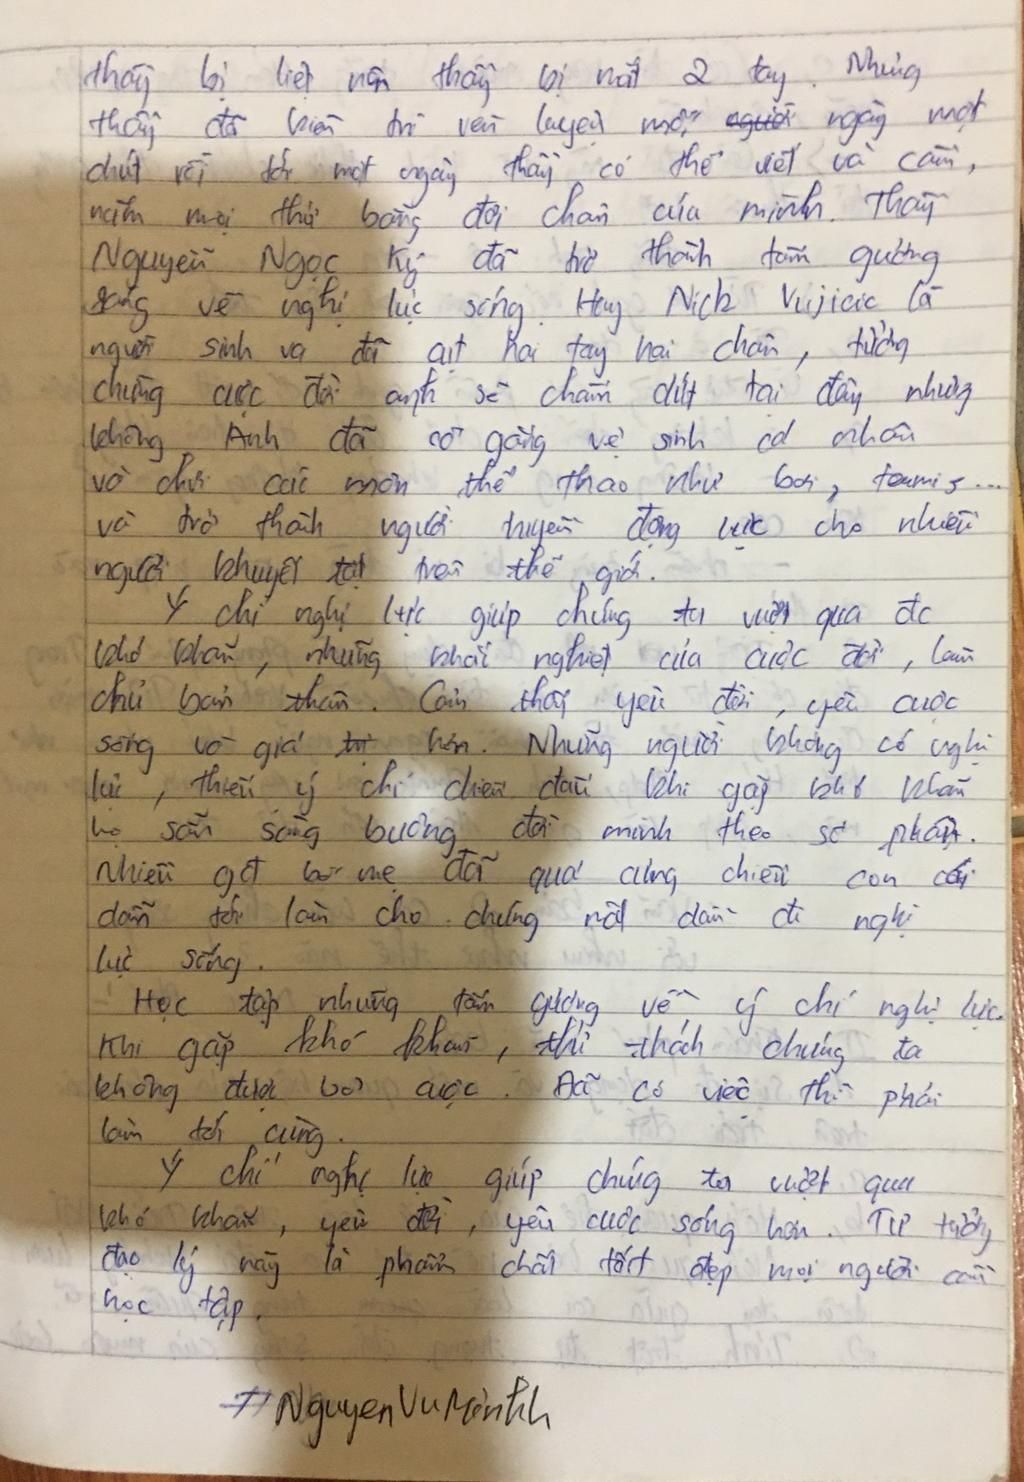 thầy bị liệt nên thầy bị mất 2 tay. Nhưng
thầy đã kiên trì rèn luyện mỗi người ngày một
chút rồi tới một ngày thầy có thể viết và cầm,
nắm mọi thứ bằng đôi chân của mình. Thầy
Nguyễn Ngọc Ký đã trở thành tấm gương
sáng về nghị lực sống. Hay Nick Vujicic là
người sinh ra đã cụt hai tay hai chân, tưởng
chừng cuộc đời anh sẽ chấm dứt tại đây nhưng
không. Anh đã cố gắng vệ sinh cá nhân
và chơi các môn thể thao như bơi, tennis...
và trở thành người truyền động lực cho nhiều
người khuyết tật trên thế giới.
Ý chí nghị lực giúp chúng ta vượt qua đc
khó khăn, những khắc nghiệt của cuộc đời, làm
chủ bản thân. Cảm thấy yêu đời, yêu cuộc
sống vô giá trị hơn. Những người không có nghị
lực, thiếu ý chí chiến đấu khi gặp khó khăn
họ sẵn sàng buông đời mình theo số phận.
Nhiều gđ bố mẹ đã quá cưng chiều con cái
dẫn tới làm cho chúng mất dần đi nghị
lực sống.
Học tập những tấm gương về ý chí nghị lực.
Khi gặp khó khăn, thử thách chúng ta
không được bỏ cuộc. Đã có việc thì phải
làm tới cùng.
Ý chí nghị lực giúp chúng ta vượt qua
khó khăn, yêu đời, yêu cuộc sống hơn. Tư tưởng
đạo lý này là phẩm chất tốt đẹp mọi người cần
học tập.
#NguyenVuMinhh